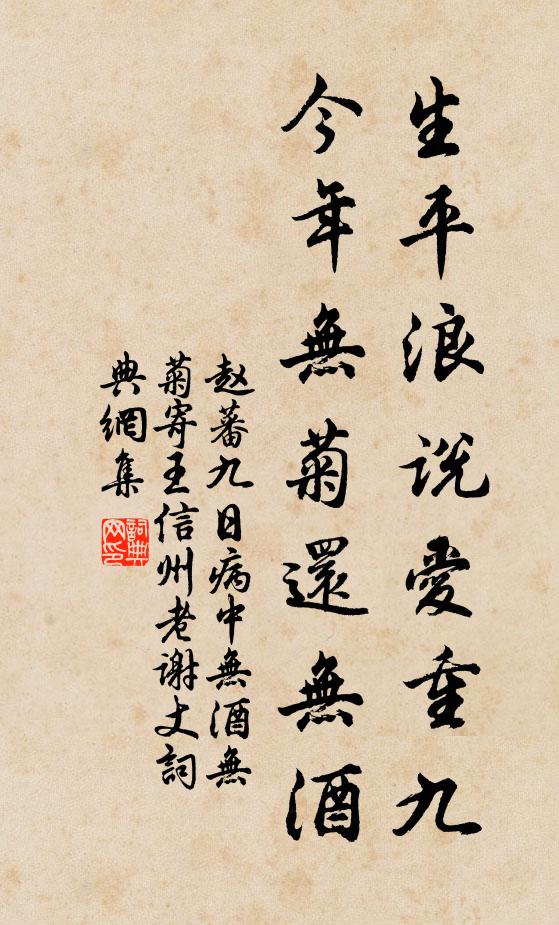 生平浪说愛重九
今年無菊還無酒
赵蕃九日病中無酒無
菊寄王信州老谢丈詞
典網集
詞典
网印